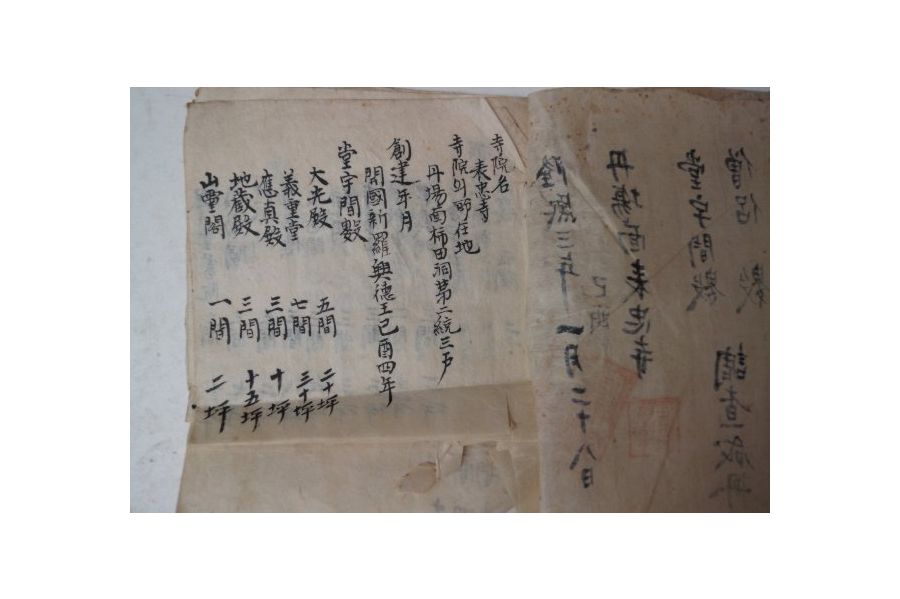 僧侶數
堂宇間數
調查成冊
丹場面表忠寺
隆熙三年 一月二十八日
寺院名
表忠寺
寺院의 所在地
丹場面柿田洞第二統三戶
創建年月
開國新羅興德王己酉四年
堂宇間數
大光殿 五間 二十坪
義重堂 七間 三十坪
應真殿 三間 十坪
地藏殿 三間 十五坪
山靈閣 一間 二坪